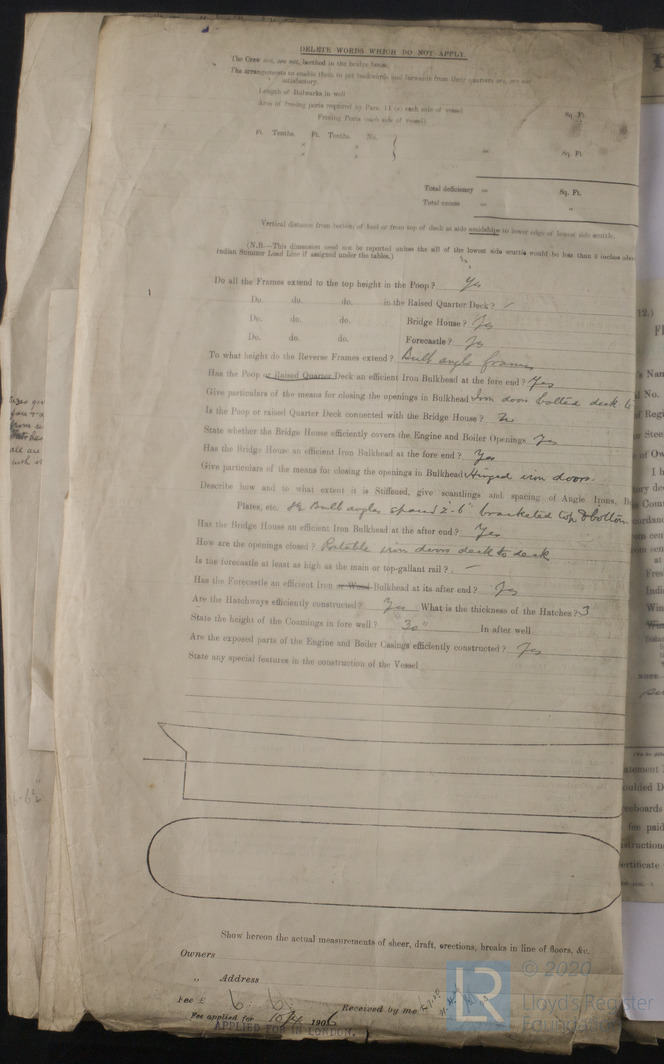 DELETE WORDS WHICH DO NOT APPLY.
The Crew are, are not, berthed in the bridge house.
The arrangements to enable them to get backwards and forwards from their quarters are, are not
satisfactory.
Length of Bulwarks in well
Area of freeing ports required by Para. 11 on each side of vessel Sq. Ft.
Freeing Ports (each side of vessel)
Ft. Tenths. Ft. Tenths. No.
× ×
× × = Sq. Ft.
Total deficiency = Sq. Ft.
Total excess = "
Vertical distance from bottom of keel or from top of deck at side amidships to lower edge of lowest side scuttle.
(N.B.—This dimension need not be reported unless the sill of the lowest side scuttle would be less than 6 inches
Indian Summer Load Line if assigned under the tables.)
Do all the Frames extend to the top height in the Poop? Yes
Do. do. do. in the Raised Quarter Deck?
Do. do. do. Bridge House? Yes
Do. do. do. Forecastle? Yes
To what height do the Reverse Frames extend? Bulb angle frames
Has the Poop or Raised Quarter Deck an efficient Iron Bulkhead at the fore end? Yes
Give particulars of the means for closing the openings in Bulkhead Iron doors bolted deck to
Is the Poop or raised Quarter Deck connected with the Bridge House? No
State whether the Bridge House efficiently covers the Engine and Boiler Openings Yes
Has the Bridge House an efficient Iron Bulkhead at the fore end? Yes
Give particulars of the means for closing the openings in Bulkhead Hinged iron doors.
Describe how and to what extent it is Stiffened, give scantlings and spacing of Angle Irons,
Plates, etc. Bulb angles spaced 2'-6" bracketed top & bottom
Has the Bridge House an efficient Iron Bulkhead at the after end? Yes
How are the openings closed? Portable iron doors deck to deck
Is the forecastle at least as high as the main or top-gallant rail? —
Has the Forecastle an efficient Iron or Wood Bulkhead at its after end? Yes
Are the Hatchways efficiently constructed? Yes What is the thickness of the Hatches? 3
State the height of the Coamings in fore well? 30" In after well
Are the exposed parts of the Engine and Boiler Casings efficiently constructed? Yes
State any special features in the construction of the Vessel
Show hereon the actual measurements of sheer, draft, erections, breaks in line of floors, &c.
Owners
" Address
Fee £ 6. 6. Received by me
Fee applied for 1906
APPLIED FOR IN LONDON.
LR
© 2020
Lloyd's Register
Foundation